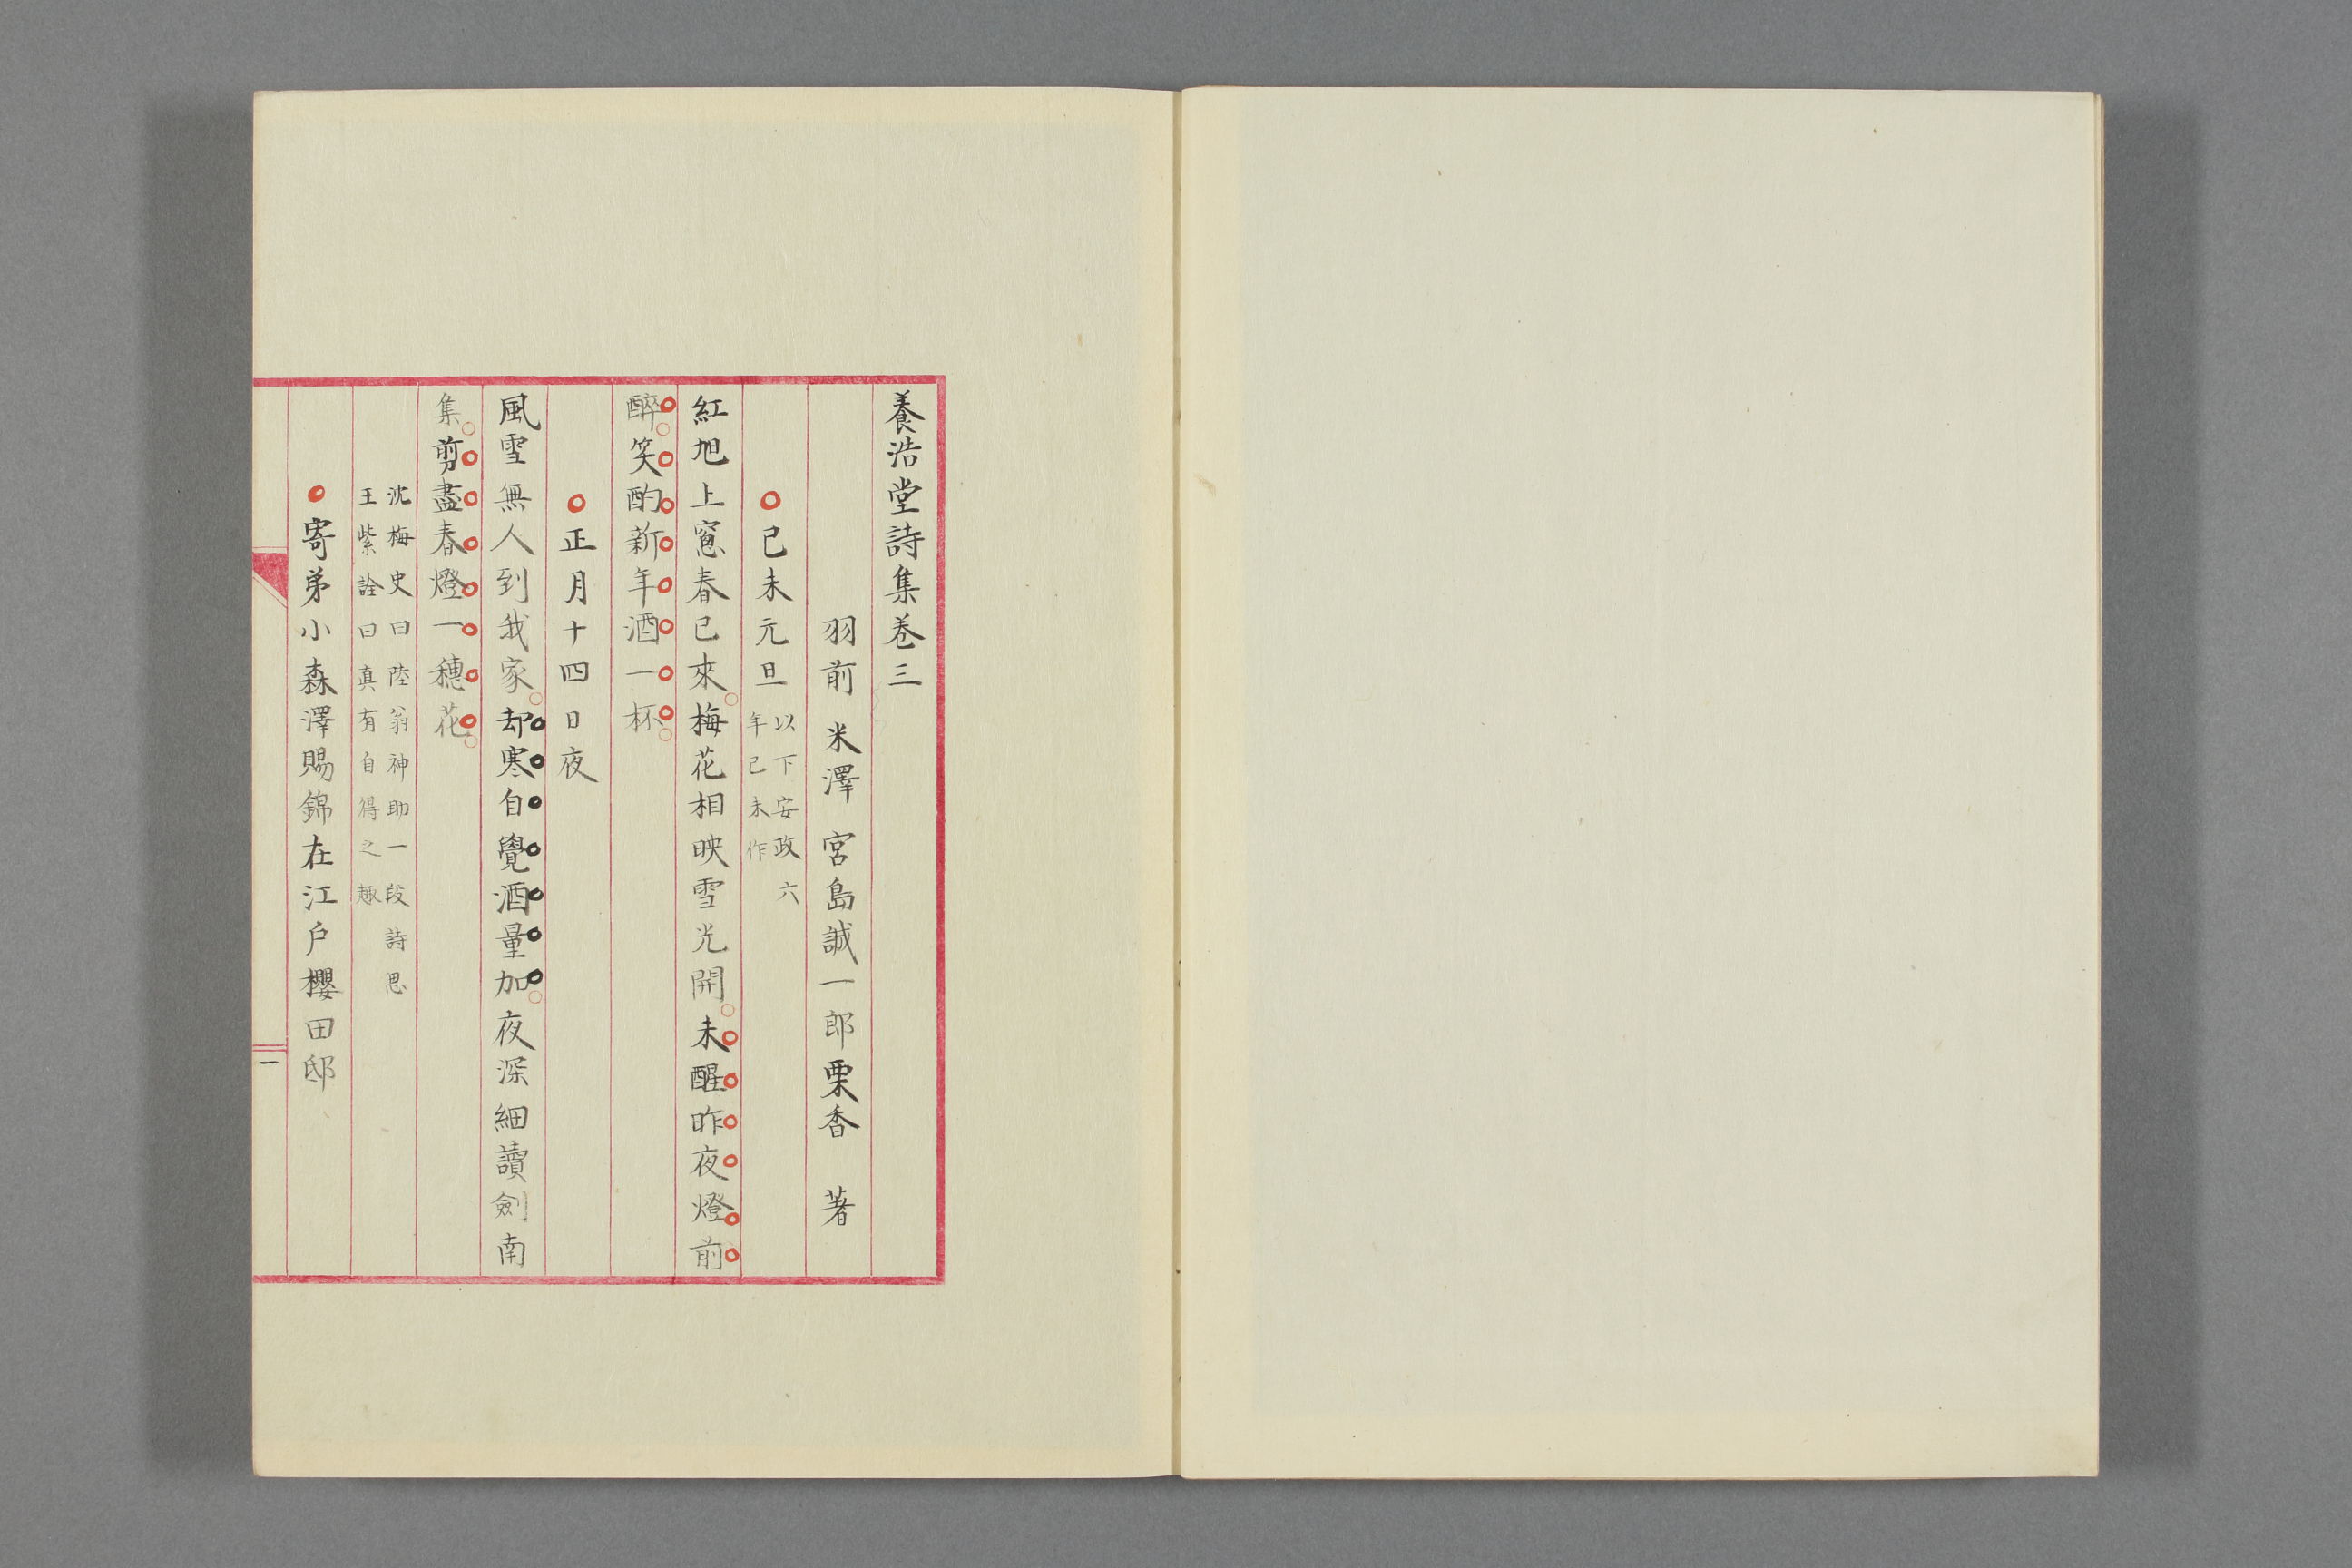 養浩堂詩集巻三
羽前 米澤 宮島誠一郎栗香 著
己未元旦 以下安政六
年己未作
紅旭上窻春已來梅花相映雪光開未醒昨夜燈前
醉笑酌新年酒一杯
正月十四日夜
風雪無人到我家却寒自覺酒量加夜深細讀劍南
集剪盡春燈一穗花
沈梅史曰陸翁神助一段詩思
王紫詮曰真有自得之趣
寄弟小森澤賜錦在江戶櫻田邸
一